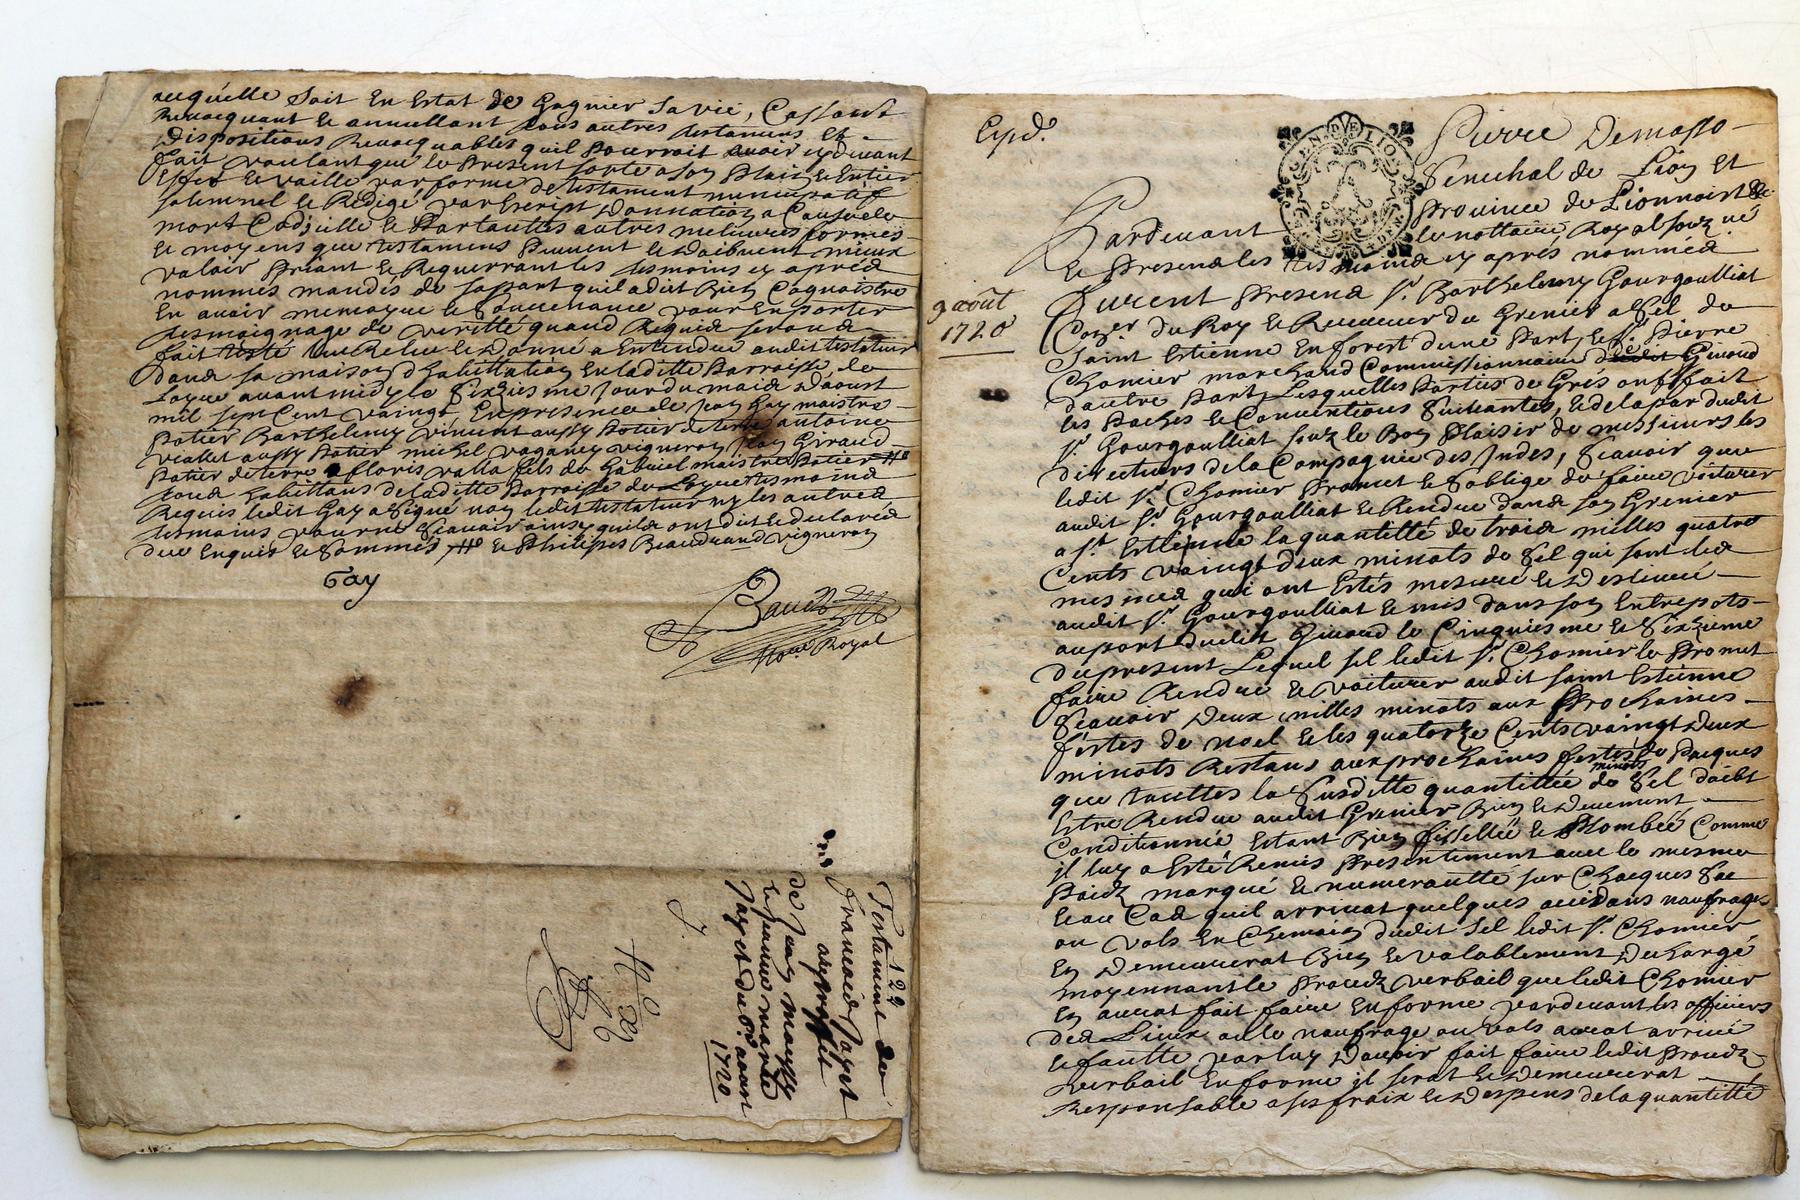 qu'elle soit en estat de gagnier sa vie, Cassant
Revocquant et annullant tous autres testamens et
dispositions Revocquables quil pourrait avoir cy devant
fait voulant que le present sorte a son plain et entier
effet et vaille par forme de testament nuncupatif
solemnel et Redigé par Escript donnation a Cause de
mort Codicille et par toutes autres melieures formes
et moyens que testamens peuvent et doibvent mieux
valoir priant et Requerrant les tesmoins cy aprés
nommés mandés de sa part quil a dit bien Cognoistre
En avoir memoyre et souvenance pour En porter
tesmoignage de veritté quand Requis seront
fait leu Releu et donné a Entendre audit testateur
dans sa maison d'habittation En laditte parroisse de
avant midy le sixziesme jour du mois daoust
mil sept Cent vaingt, En presence de Jean Gay maistre
potier Barthelemy vincent aussy potier de terre antoine
viallet aussy potier michel vaganey vigneron Jean Giraud
potier de terre floris valla fils de Gabriel maistre potier
tous habittans de laditte parroisse de tesmoins
Requis ledit Gay a signé non ledit testateur ny les autres
tesmoins pour ne sçavoir ainsy quils ont dit et declaré
de ce Enquis et sommés et Philipes Beaudrand vigneron
Gay
No.re Royal
122
Testament de
francois Jayet
au proffit
de
1720
Exp.d
Pierre Demasso
Senechal de Lion et
Province de Lionnois &c.
GEN DE LION
Pardevant le nottaire Royal souz.né
et presens les tesmoins cy aprés nommés
9 août
1720
furent presens s.r Barthelemy Gourgoulliat
Con.er du Roy et Receveur du Grenier a sel de
Saint Estienne En forest d'une part, et s.r Pierre
Chomier marchand Commissionnaire Giraud
dautre part, Lesquelles parties de Grés ont fait
les paches et Conventions suivantes, et de la part dudit
s.r Gourgoulliat souz le bon plaisir de messieurs les
directeurs de la Compagnie des Indes, sçavoir que
ledit s.r Chomier promet et s'oblige de faire voiturer
audit s.r Gourgoulliat et Rendre dans son Grenier
a s.t Estienne la quantitté de trois milles quatre
Cents vaingt deux minots de sel qui sont les
mesmes qui ont Estés mesuré et deslivré
audit s.r Gourgoulliat et mis dans son Entrepots
au port dudit Giraud le Cinquiesme et sixzieme
du present Lequel sel ledit s.r Chomier le promet
faire Rendre et voiturer audit saint Estienne
sçavoir deux milles minots aux prochaines
festes de noel et les quatorze Cents vaingt deux
minots Restans aux prochaines festes de pacques
que touttes la susditte quantittée minots de sel doibt
Estre Rendue audit Grenier bien et deuement
Conditionnée Estant bien fissellée et plombée Comme
il luy a Esté Remis presentement avec le mesme
poidz marqué et numerautté sur Chacques sac
et au Cas quil arrivat quelques accidans naufrages
ou vols En Chemain dudit sel ledit s.r Chomier
En demeurerat bien et valablement dechargé
moyennant le procedz verbail que ledit Chomier
En aurat fait faire En forme pardevant les officiers
des Lieux ou le naufrage ou vols aurat arrivé
et faulte par luy davoir fait faire ledit procedz
verbail En forme il serat et demeurerat
Responsable a ses fraix et despens de la quantitté